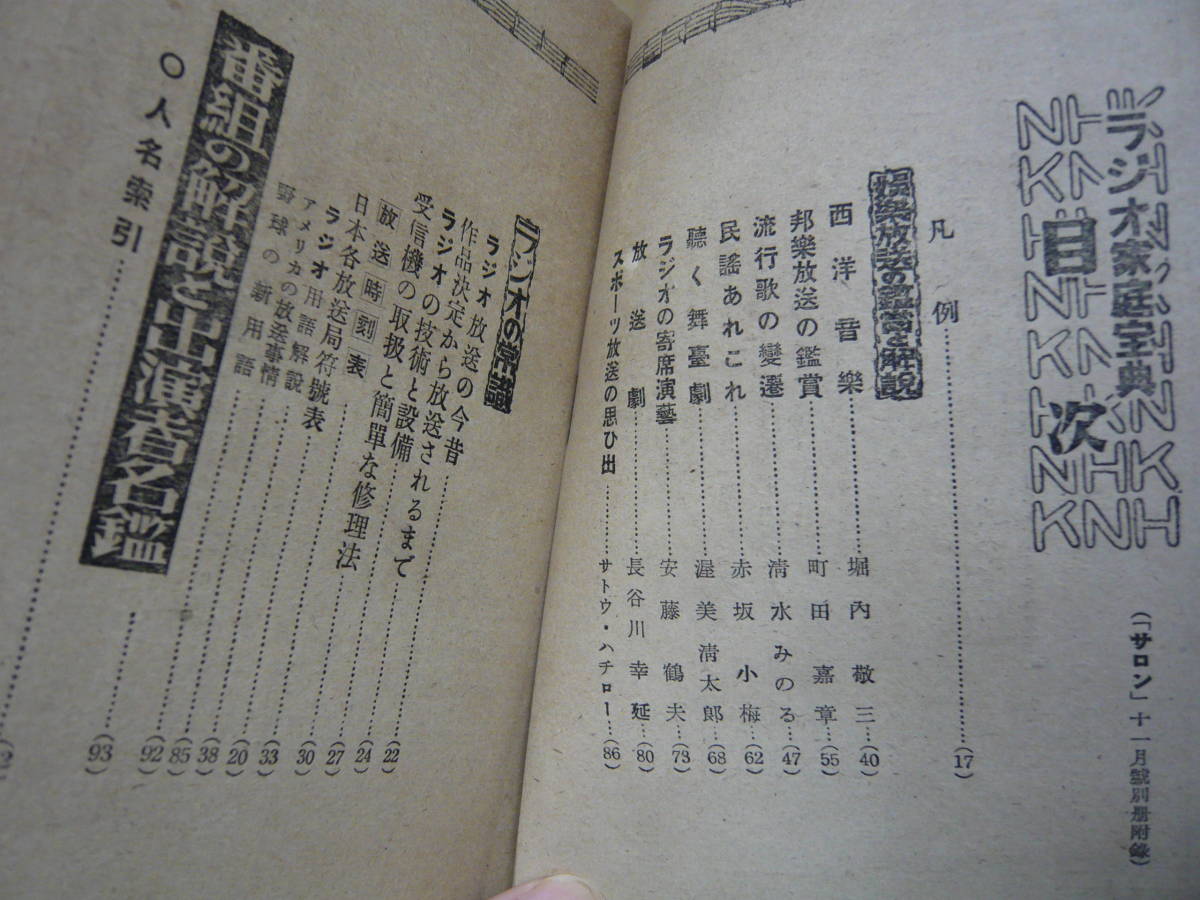 ラジオ家庭字典
目次
(「サロン」十一月號別册附錄)
凡例……(17)
娯樂放送の鑑賞と解説
西洋音樂……堀內敬三…(40)
邦樂放送の鑑賞……町田嘉章…(55)
流行歌の變遷……清水みのる…(47)
民謠あれこれ……赤坂小梅…(62)
聽く舞臺劇……渥美清太郎…(68)
ラジオの寄席演藝……安藤鶴夫…(73)
放送劇……長谷川幸延…(80)
スポーツ放送の思ひ出……サトウ・ハチロー…(86)
ラジオの常識
ラジオ放送の今昔……(22)
作品決定から放送されるまで……(24)
ラジオの技術と設備……(27)
受信機の取扱と簡單な修理法……(30)
放送時刻表……(33)
日本各放送局符號表……(20)
ラジオ用語解説……(38)
アメリカの放送事情……(85)
野球の新用語……(92)
番組の解説と出演者名鑑……(93)
○人名索引……